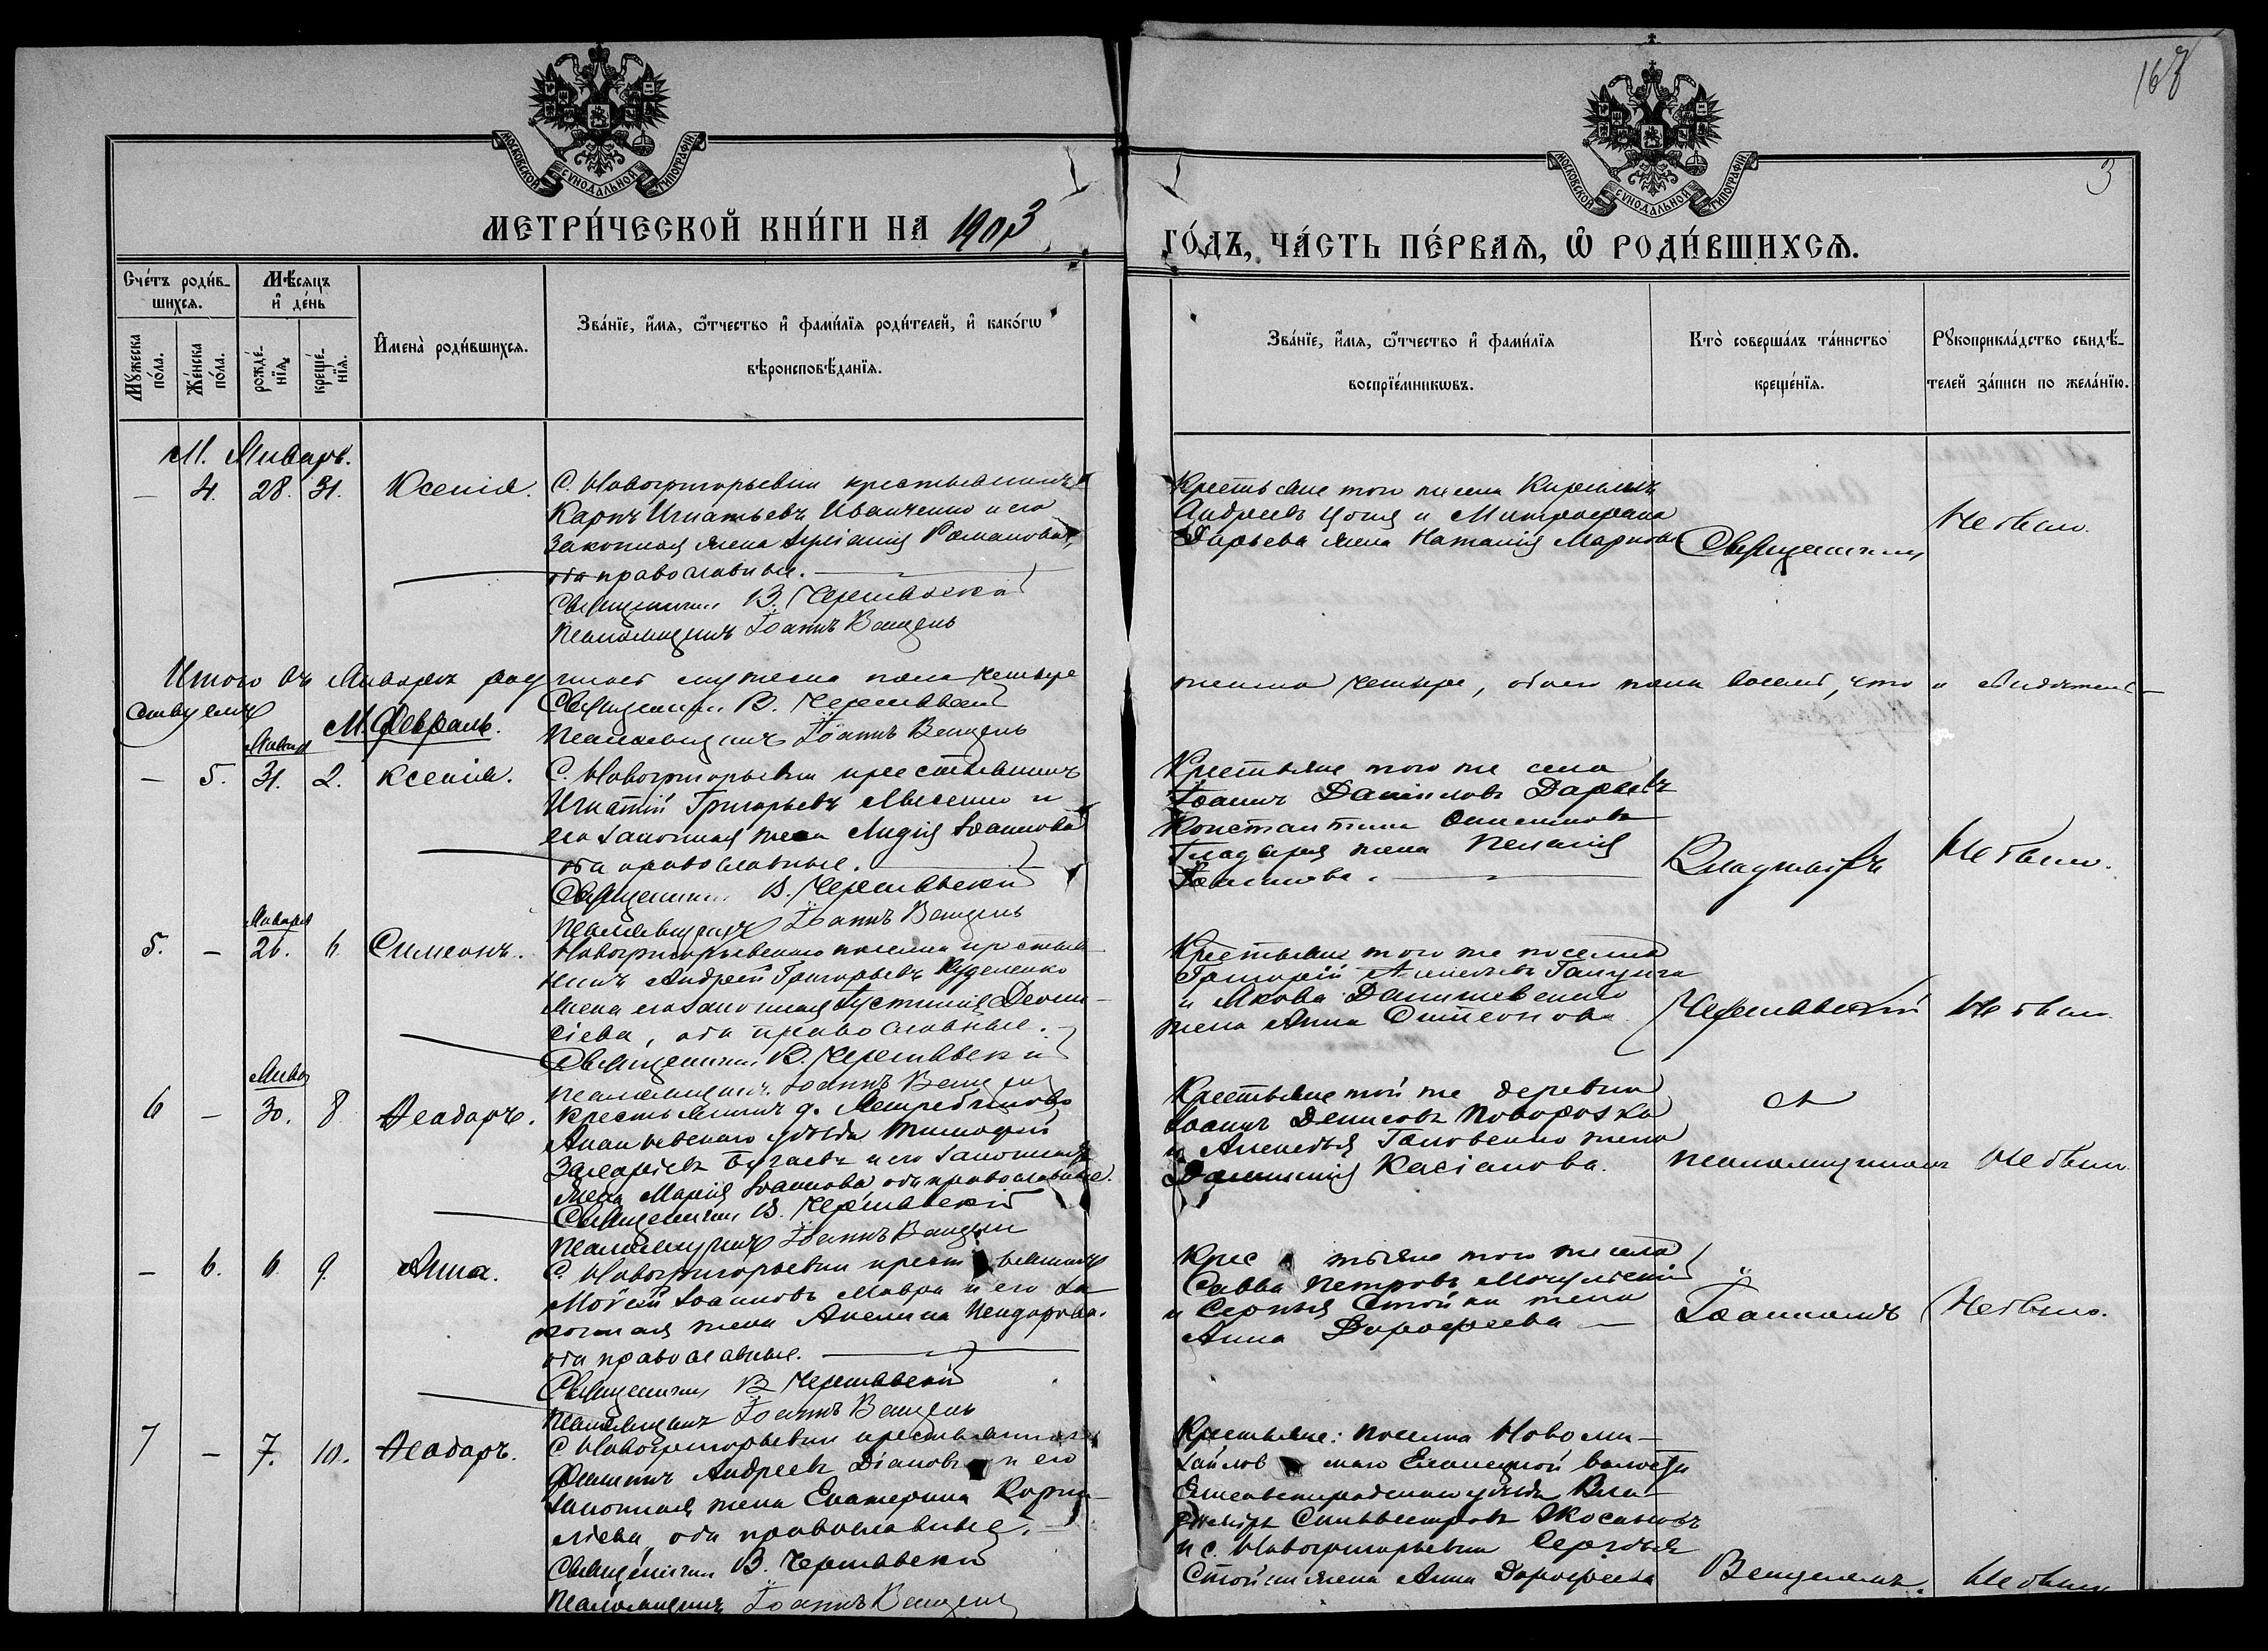 167
3
МОСКОВСКОЙ СѴНОДАЛЬНОЙ ТИПОГРАФІИ
МОСКОВСКОЙ СѴНОДАЛЬНОЙ ТИПОГРАФІИ
МЕТРИ́ЧЕСКОЙ КНИ́ГИ НА 1903
ГО́ДЪ, ЧА́СТЬ ПЕ́РВАѦ, Ѡ҆ РОДИ́ВШИХСѦ.
Сче́тъ роди́в-
шихсѧ.
Мѣ́сѧцъ
и҆ де́нь
Мꙋ́жеска
по́ла.
Же́нска
по́ла.
рожде́-
нїѧ.
креще́-
нїѧ.
И҆мена̀ роди́вшихсѧ.
Зва́нїе, и҆́мѧ, ѻ҆́тчество и҆ фамі́лїѧ роди́телей, и҆ како́гѡ
вѣроисповѣ́данїѧ.
Зва́нїе, и҆́мѧ, ѻ҆́тчество и҆ фамі́лїѧ
воспрїе́мникѡвъ.
Кто̀ соверша́лъ та́инство
креще́нїѧ.
Рꙋкоприкла́дство свидѣ́-
телей за́писи по жела́нїю.
М. Январь.
— 4. 28. 31. Ксенія.
С. Новогригорьевки крестьянинъ
Карпъ Игнатьевъ Иванченко и его
законная жена Романова,
оба православные.
Священникъ В. Чернявскій
Псаломщикъ Іоаннъ Венцель
Крестьяне того же села Кириллъ
Андреевъ и Митрофана
Дарьева жена Наталія Маркова
Священникъ
Не было.
Итого въ Январѣ родилось мужеска пола четыре
женска четыре, обоего пола восемь, что и свидѣтель-
ствуемъ
Священникъ В. Чернявскій
Псаломщикъ Іоаннъ Венцель
М. Февраль.
Января
— 5. 31. 2. Ксенія.
С. Новогригорьевки крестьянинъ
Игнатій Григорьевъ и
его законная жена Лидія Іоаннова
оба православные.
Священникъ В. Чернявскій
Псаломщикъ Іоаннъ Венцель
Крестьяне того же села
Іоаннъ Даніиловъ
Константина
жена Пелагія
Владиміръ
Не было.
Января
5. — 26. 6. Симеонъ.
Новогригорьевскаго поселка крестья-
нинъ Андрей Григорьевъ
жена его законная Іустинія Діони-
сіева, оба православные.
Священникъ В. Чернявскій
Псаломщикъ Іоаннъ Венцель
Крестьяне того же поселка
Григорій
и Якова
жена Анна
Чернявскій
Не было.
Янва
6 — 30. 8. Ѳеодоръ.
Крестьянинъ д.
Ананьевскаго уѣзда Тимофей
Захаріевъ Бугаевъ и его законная
жена Марія Іоаннова оба православные.
Священникъ В. Чернявскій
Псаломщикъ Іоаннъ Венцель
Крестьяне той же деревни
Іоаннъ Денисовъ
и Алексѣя жена
Касіанова.
съ
псаломщикомъ
Не было.
— 6. 6. 9. Анна.
С. Новогригорьевки крестьянинъ
Мойсей Іоанновъ Мавра и его за-
конная жена
оба православные.
Священникъ В. Чернявскій
Псаломщикъ Іоаннъ Венцель
Крестьяне того же села
Савва Петровъ
и Сергѣя Стойки жена
Анна Дорофеева
Іоанномъ
Не было.
7 — 7. 10. Ѳеодоръ.
С. Новогригорьевки крестьянинъ
Филиппъ Андреевъ Діановъ и его
законная жена Екатерина Корни-
ліева, оба православные.
Священникъ В. Чернявскій
Псаломщикъ Іоаннъ Венцель
Крестьяне: поселка Новоми-
хайловскаго волости
Елисаветградскаго уѣзда Вла-
диміръ Сильвестровъ
и с. Новогригорьевки Сергѣя
Стойки жена Анна Дорофеева
Венцелемъ.
Не было